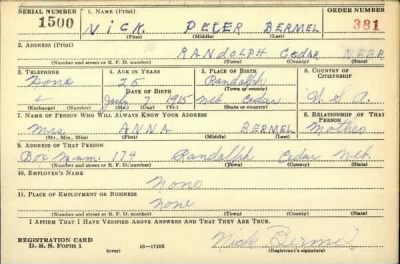 SERIAL NUMBER 1. NAME (Print) ORDER NUMBER
1500 NICK PETER BERMEL 381
(First) (Middle) (Last)
2. ADDRESS (Print)
RANDOLPH Cedar NEBR
(Number and street or R. F. D. number) (Town) (County) (State)
3. TELEPHONE 4. AGE IN YEARS 5. PLACE OF BIRTH 6. COUNTRY OF CITIZENSHIP
None 25 Randolph
DATE OF BIRTH (Town or county)
7 1915 Neb Cedar U.S.A.
(Exchange) (Number) (Mo.) (Day) (Yr.) (State or country)
7. NAME OF PERSON WHO WILL ALWAYS KNOW YOUR ADDRESS 8. RELATIONSHIP OF THAT PERSON
Mrs ANNA BERMEL Mother
(Mr., Mrs., Miss) (First) (Middle) (Last)
9. ADDRESS OF THAT PERSON
Box 174 Randolph Cedar Neb.
(Number and street or R. F. D. number) (Town) (County) (State)
10. EMPLOYER'S NAME
None
11. PLACE OF EMPLOYMENT OR BUSINESS
None
(Number and street or R. F. D. number) (Town) (County) (State)
I AFFIRM THAT I HAVE VERIFIED ABOVE ANSWERS AND THAT THEY ARE TRUE.
REGISTRATION CARD
D. S. S. Form 1 (over) 16—17105 Nick Bermel
(Registrant's signature)